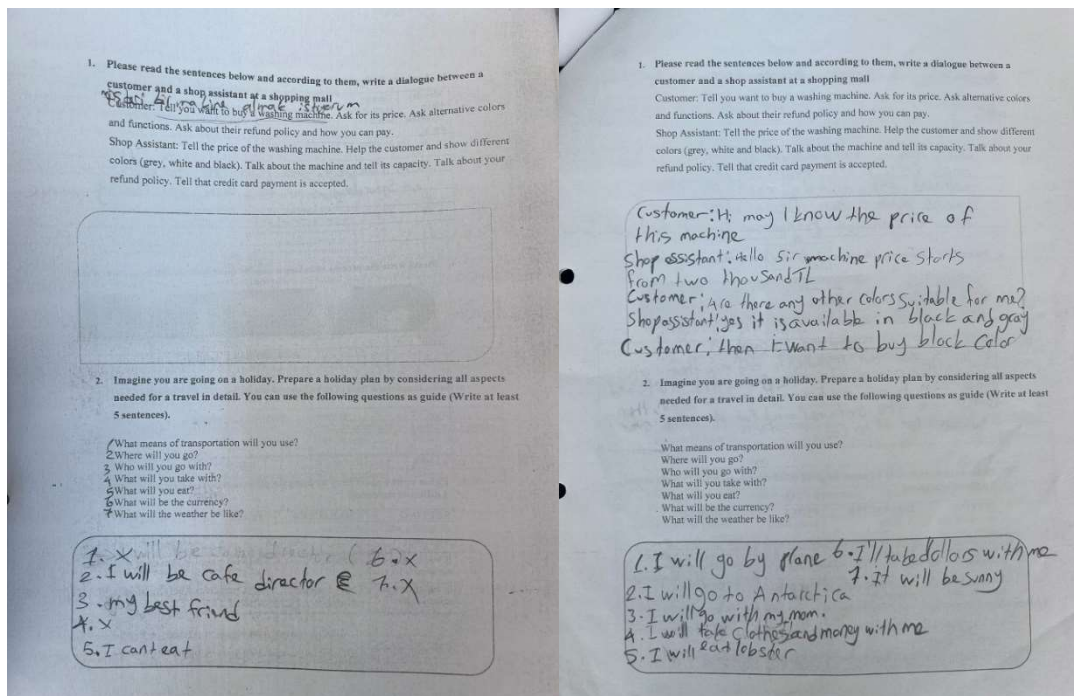 1. Please read the sentences below and according to them, write a dialogue between a
customer and a shop assistant at a shopping mall
almak istiyorum
Customer: Tell you want to buy a washing machine. Ask for its price. Ask alternative colors
and functions. Ask about their refund policy and how you can pay.
Shop Assistant: Tell the price of the washing machine. Help the customer and show different
colors (grey, white and black). Talk about the machine and tell its capacity. Talk about your
refund policy. Tell that credit card payment is accepted.
2. Imagine you are going on a holiday. Prepare a holiday plan by considering all aspects
needed for a travel in detail. You can use the following questions as guide (Write at least
5 sentences).
1 What means of transportation will you use?
2 Where will you go?
3 Who will you go with?
4 What will you take with?
5 What will you eat?
6 What will be the currency?
7 What will the weather be like?
1. X 6. X
2. I will be cafe director 7. X
3. my best friend
4. X
5. I cant eat
1. Please read the sentences below and according to them, write a dialogue between a
customer and a shop assistant at a shopping mall
Customer: Tell you want to buy a washing machine. Ask for its price. Ask alternative colors
and functions. Ask about their refund policy and how you can pay.
Shop Assistant: Tell the price of the washing machine. Help the customer and show different
colors (grey, white and black). Talk about the machine and tell its capacity. Talk about your
refund policy. Tell that credit card payment is accepted.
Customer: Hi may I know the price of
this machine
Shop assistant: Hello Sir machine price starts
from two thousand TL
Customer: Are there any other colors suitable for me?
Shop assistant: yes it is available in black and gray
Customer: then I want to buy black color
2. Imagine you are going on a holiday. Prepare a holiday plan by considering all aspects
needed for a travel in detail. You can use the following questions as guide (Write at least
5 sentences).
What means of transportation will you use?
Where will you go?
Who will you go with?
What will you take with?
What will you eat?
What will be the currency?
What will the weather be like?
1. I will go by plane 6. I'll take dollars with me
7. It will be sunny
2. I will go to Antarctica
3. I will go with my mom.
4. I will take clothes and money with me
5. I will eat lobster